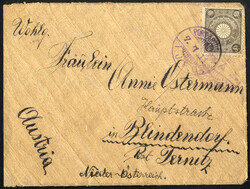 Wohlg.
Fräulein Anna Ostermann
Hauptstrasse
in Blindendorf
Post Pernitz
Nieder-Österreich.
Austria